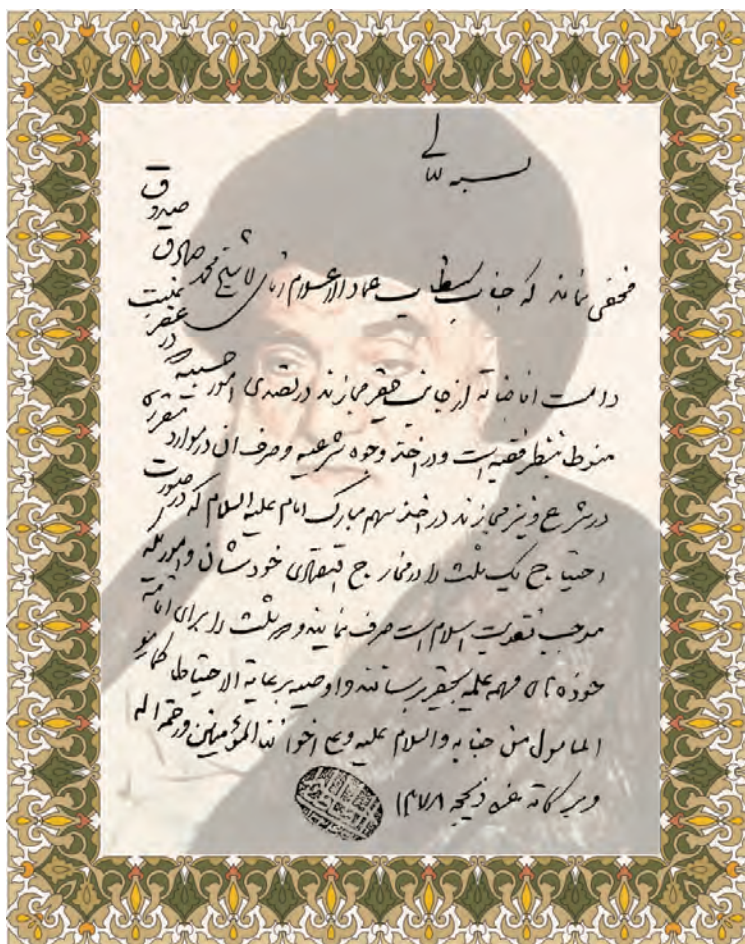 بسمه تعالی
مخفی نماند که جناب مستطاب عماد الاعلام آقای آقا شیخ محمد صادق صدوق
دامت افاضاته از جانب حقیر مجازند در تصدی امور حسبیه که در عصر غیبت
منوط بنظر فقیه است و در اخذ وجوه شرعیه و صرف آن در موارد مقرره
در شرع و نیز مجازند در اخذ سهم مبارک امام علیه السلام که در صورت
احتیاج یک ثلث را در مخارج اقتصادی خودشان و اموریکه
موجب تقویت اسلام است صرف نمایند و دو ثلث را برای اقامه
حوزه های مهمه علمیه بحقیر برسانند و اوصیه برعایة الاحتیاط کما هو
المأمول من جنابه والسلام علیه و علی اخواننا المؤمنین و رحمة الله
و برکاته غره ذیحجه ۱۳۷۸